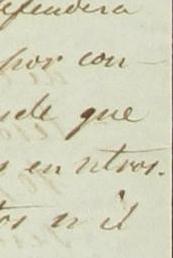 efendera
por con-
nde que
s en ntros.
tos n il